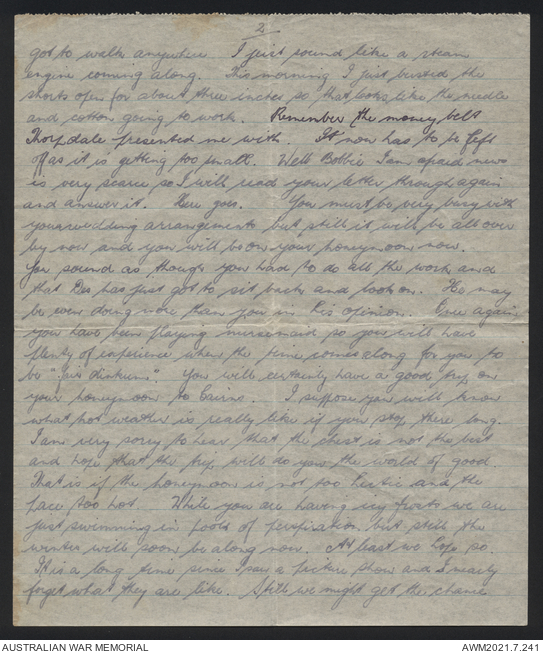 2
got to walk anywhere. I just sound like a steam
engine coming along. This morning I just busted the
shorts open for about three inches so that looks like the needle
and cotton going to work. Remember the money belt
Thorpdale presented me with. It now has to be left
off as it is getting too small. Well Bobbie I am afraid news
is very scarce so I will read your letter through again
and answer it. Here goes. You must be very busy with
your wedding arrangements but still it will be all over
by now and you will be on your honeymoon now.
You sound as though you had to do all the work and
that Des has just got to sit back and look on. He may
be even doing more than you in his opinion. Once again
you have been playing nursemaid so you will have
plenty of experience when the time comes along for you to
be "fair dinkum". You will certainly have a good trip on
your honeymoon to Cairns. I suppose you will know
what hot weather is really like if you stop there long.
I am very sorry to hear that the chest is not the best
and hope that the trip will do you the world of good.
That is if the honeymoon is not too hectic and the
pace too hot. While you are having icy frosts we are
just swimming in pools of perspiration but still the
winter will soon be along now. At least we hope so.
It is a long time since I saw a picture show and I nearly
forget what they are like. Still we might get the chance
AUSTRALIAN WAR MEMORIAL
AWM2021.7.241